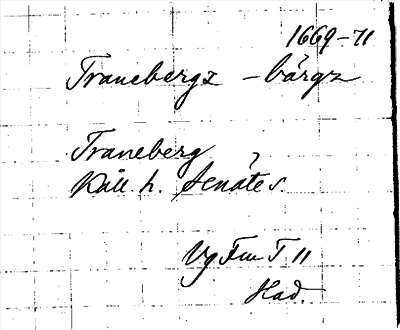 1669-71
Tranebergz -bårgz
Traneberg
Kåll. h. Senäte s.
Vg Fm T 11
Had.